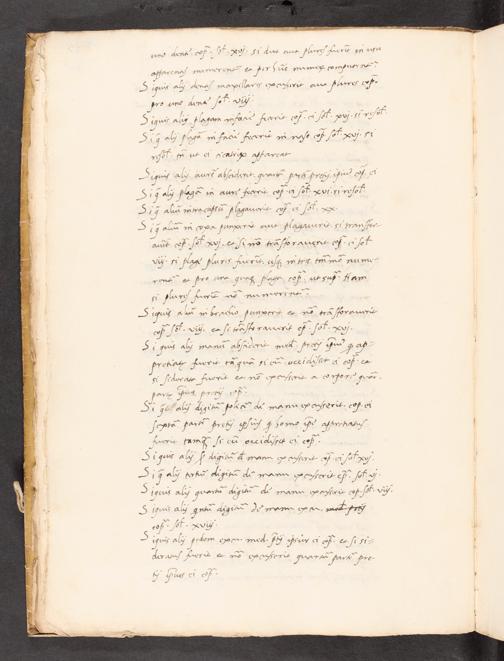 uno dente cop̃. sol̃. xvj. si duo aut plures fuerint in risu
apparentes numerent̃ et per hũc numerũ component̃
Siquis alij dentes maxillares excusserit aut plures cop̃.
pro uno dente sol̃. viij.
Siquis alij plagam in faciẽ fecerit cop̃. ei sol̃. xvj. si nasol̃.
Si q̃ alij plagã in facie fecerit in naso cop̃. sol̃. xvj. si
nasol̃. tñ ut ei cicatrix appareat
Siquis alij aurẽ absciderit quartã partẽ pretij ipsius cop̃. ei
Si q̃ alij plagã in aurẽ fecerit cop̃. ei sol̃. xvj. si
Si q̃ aliũ intra capsũ plagaverit cop̃. ei sol̃. xx.
Si q̃ aliũ in coxa punxerit aut plagaverit si transfor-
averit cop̃. sol̃. xvj. et si nõ trãsforaverit cop̃. ei sol̃.
viij. si plage plures fuerint usq̃ in tres tñmõ nume-
rent̃ et pro una quaq̃ plaga cop̃. ut supra etiam
si plures fuerint nõ numerent̃.
Siquis aliũ in brachio punxerit et nõ trãsforaverit
cop̃. sol̃. viij. et si trãsforaverit cop̃. sol̃. xvj.
Si quis alij manũ absciderit med. pretij ipsius q̃ ap-
pretiatus fuerit tãquã si eũ occidisset ei cop̃. et
si siderata fuerit et nõ excusserit a corpore quar.
partẽ ipsius pretij cop̃.
Si q̃ alij digitũ policẽ de manu excusserit cop. ei
sextam partẽ pretij ipsius q̃ homo ipse appretiatus
fuerit tamq̃ si eũ occidisset ei cop̃.
Si quis alij digitũ de manu excusserit cop̃. ei sol̃. xvj.
Si q̃ alij tertiũ digitũ de manu excusserit cop̃. sol̃.
Siquis alij quartũ digitũ de manu excusserit cop. sol̃. viij.
Siquis alij quintũ digitũ de manu excu.
cop̃. sol̃. xviij.
Siquis alij pedem excu. med. pretij ipsius ei cop̃. et si si-
deratus fuerit et nõ excusserit quartã partẽ pre-
tij ipsius ei cop̃.